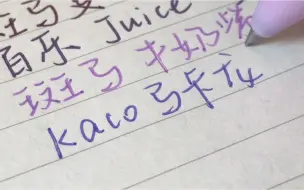 百乐 Juice
斑马 牛奶
Kaco 马卡